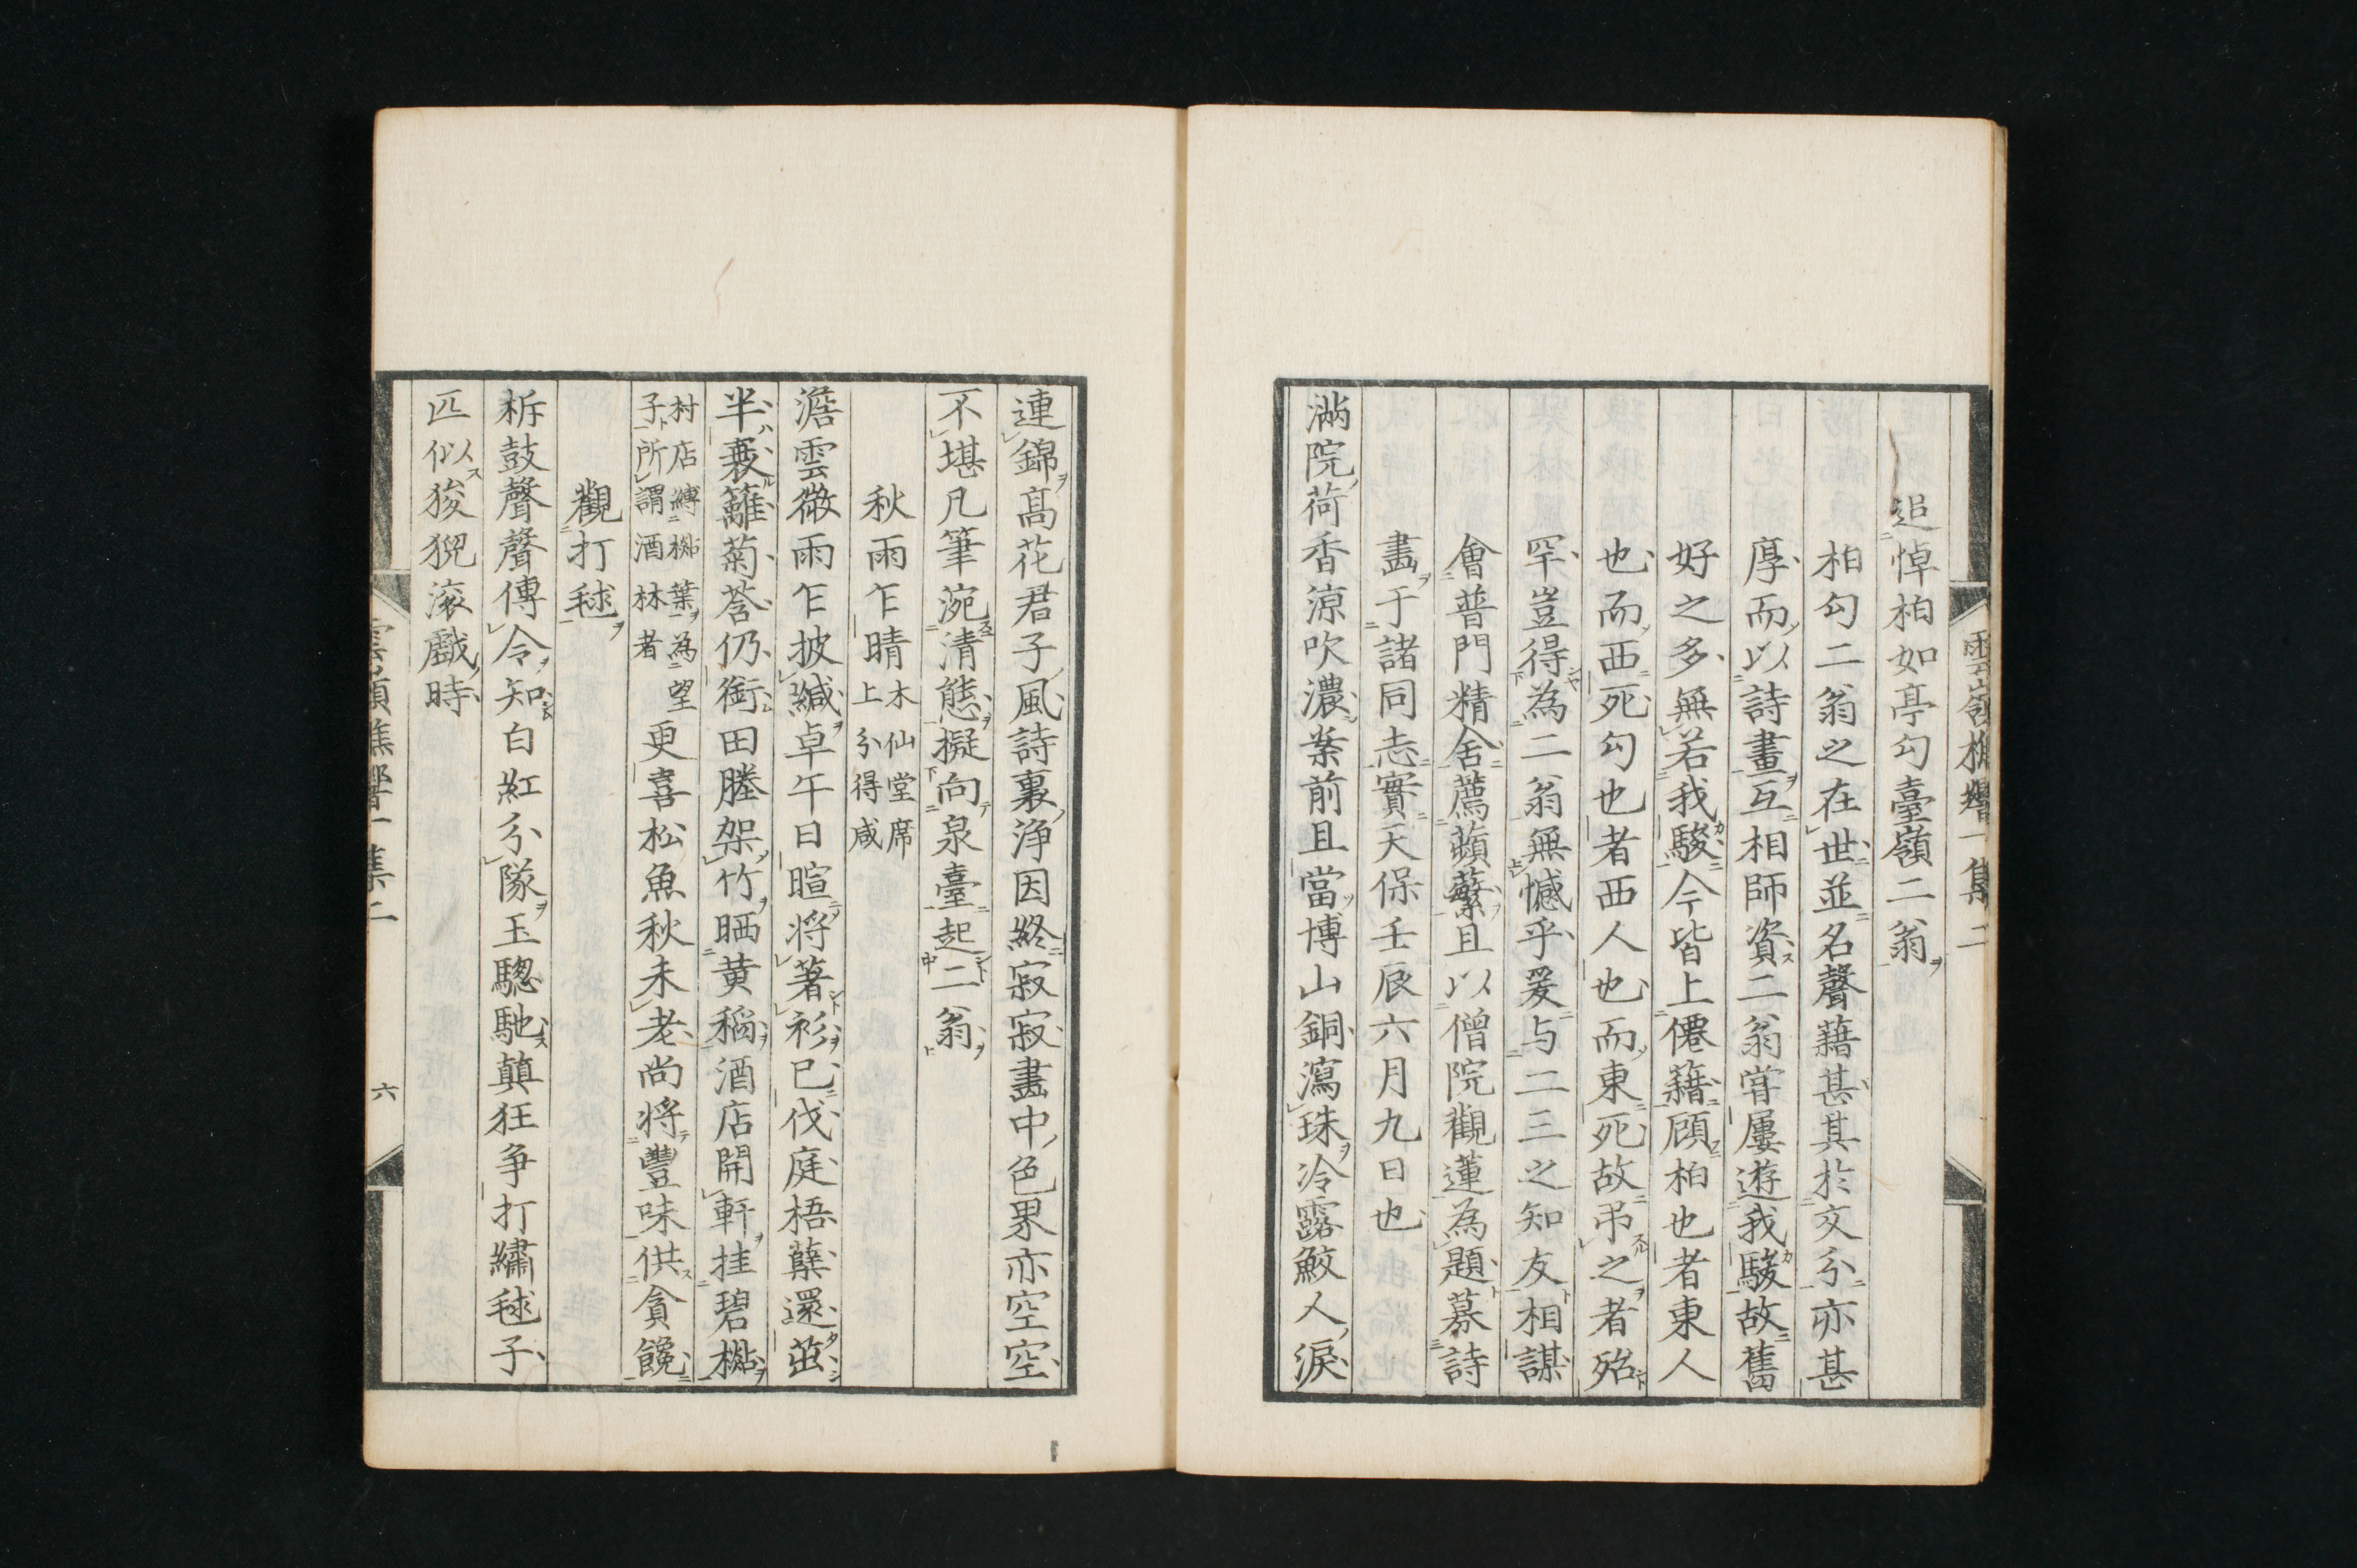 追悼柏如亭勾臺嶺二翁
柏勾二翁之在世並名聲藉甚其於交分亦甚
厚而以詩畫互相師資二翁甞屢遊我駿故舊
好之多無若我駿今皆上僊籍顧柏也者東人
也而西死勾也者西人也而東死故弔之者殆
罕豈得為二翁無憾乎爰与二三之知友相謀
會普門精舍薦蘋蘩且以僧院觀蓮為題募詩
畫于諸同志實天保壬辰六月九日也
滿院荷香凉吹濃案前且當博山銅瀉珠冷露鮫人淚
連錦高花君子風詩裏淨因終寂寂畫中色界亦空空
不堪凡筆涴清態擬向泉臺起二翁
秋雨乍晴
木仙堂席
上分得咸
澹雲微雨乍披緘卓午日暄將著衫已伐庭梧蘖還茁
半蓑籬菊苔仍銜田塍架竹晒黄稻酒店開軒挂碧𣘖
村店縛𣘖葉為望
子所謂酒林者
更喜松魚秋未老尚將豐味供貪饞
觀打毬
柝鼓聲聲傳令知白紅分隊玉驄馳蹎狂爭打繡毬子
匹似狻猊滚戲時
六